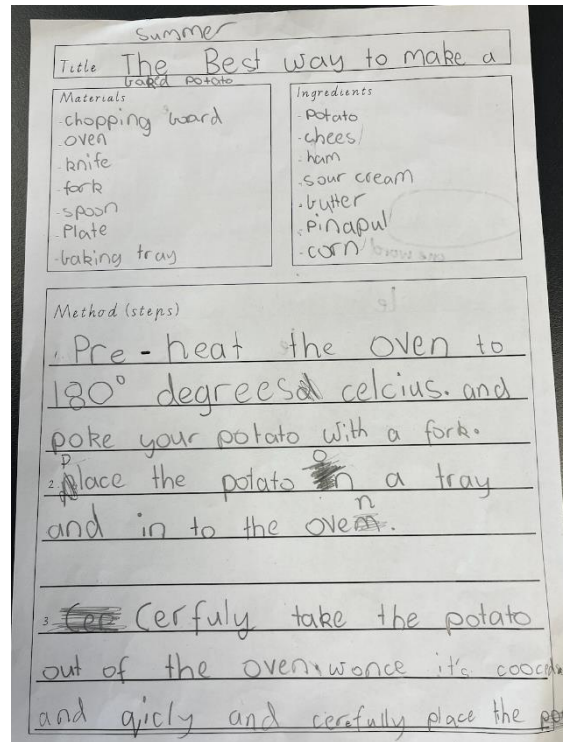 Summer
Title The Best way to make a
baked potato
Materials
- chopping board
- oven
- knife
- fork
- spoon
- Plate
- baking tray
Ingredients
- Potato
- chees
- ham
- sour cream
- butter
- pinapul
- corn
Method (steps)
1. Pre-heat the oven to
180° degrees celcius. and
poke your potato with a fork.
2. Place the potato on a tray
and in to the oven.
3. Cerfuly take the potato
out of the oven wonce it's
and qicly and cerefully place the